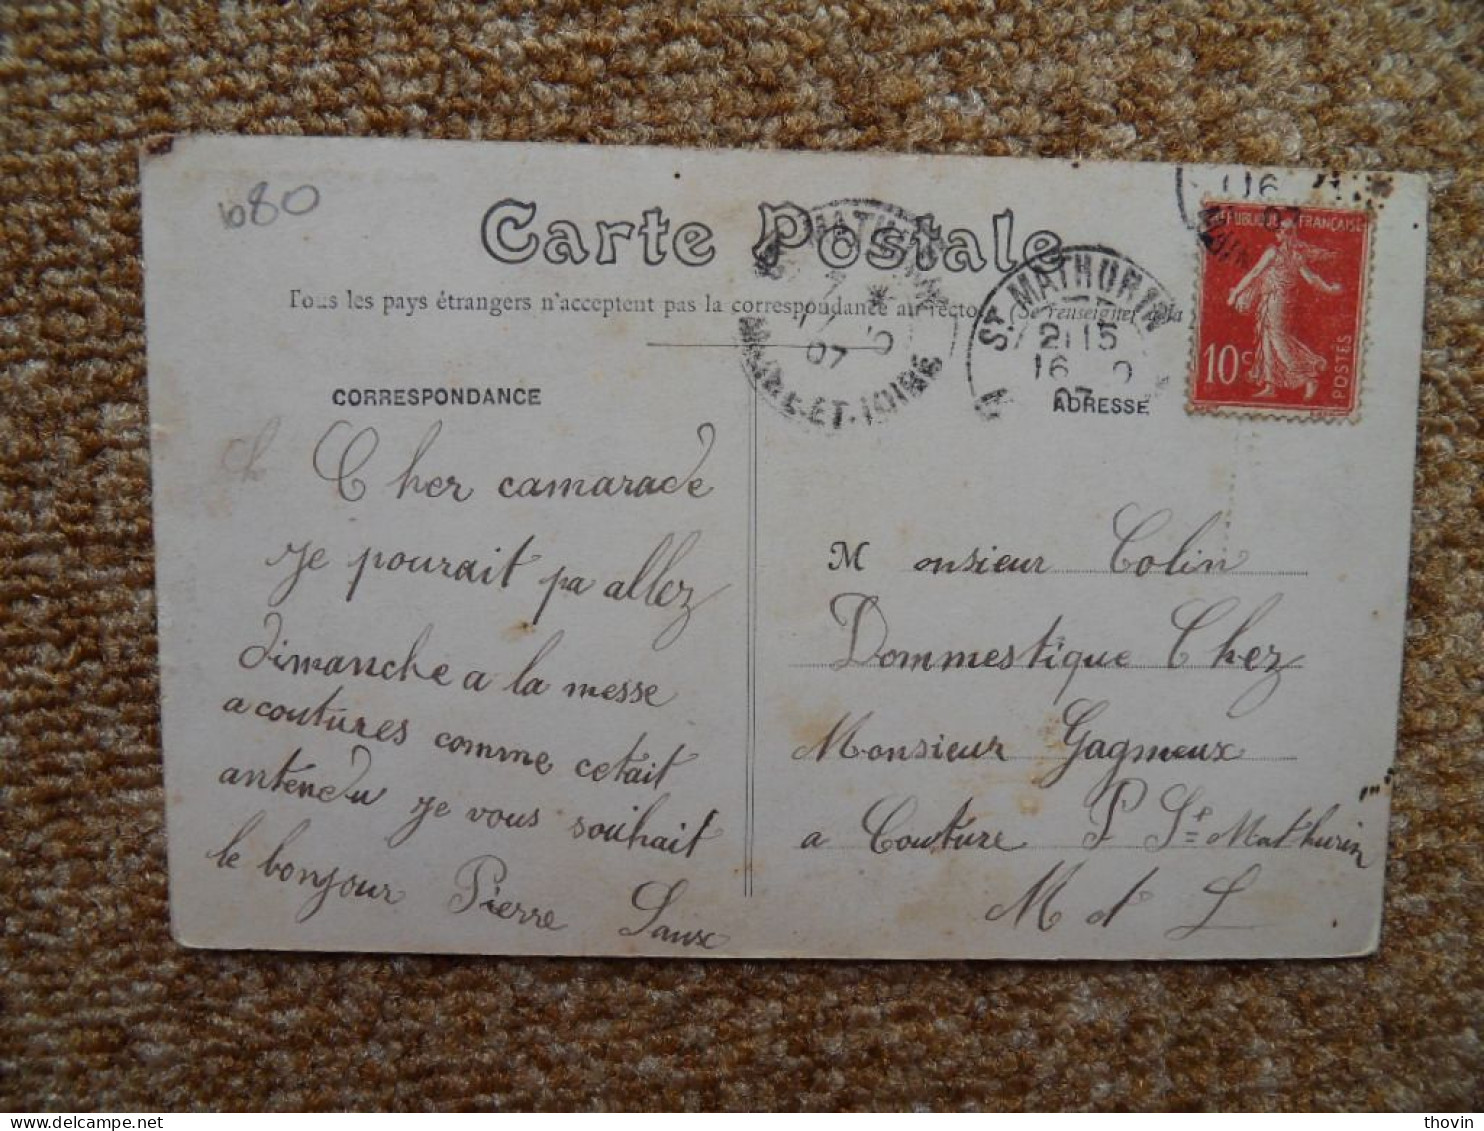 b80
Carte Postale
Tous les pays étrangers n'acceptent pas la correspondance au recto (Se renseigner à la
CORRESPONDANCE
Cher camarade
Je pourait pa allez
dimanche a la messe
a coutures comme cetait
antendu Je vous souhait
le bonjour Pierre Saux
ST MATHURIN
MAINE-ET-LOIRE
07
ST MATHURIN
21 15
16
07
RÉPUBLIQUE FRANÇAISE
10c
POSTES
ADRESSE
Monsieur Colin
Dommestique Chez
Monsieur Gagneux
a Couture P St Mathurin
M et L
thovin